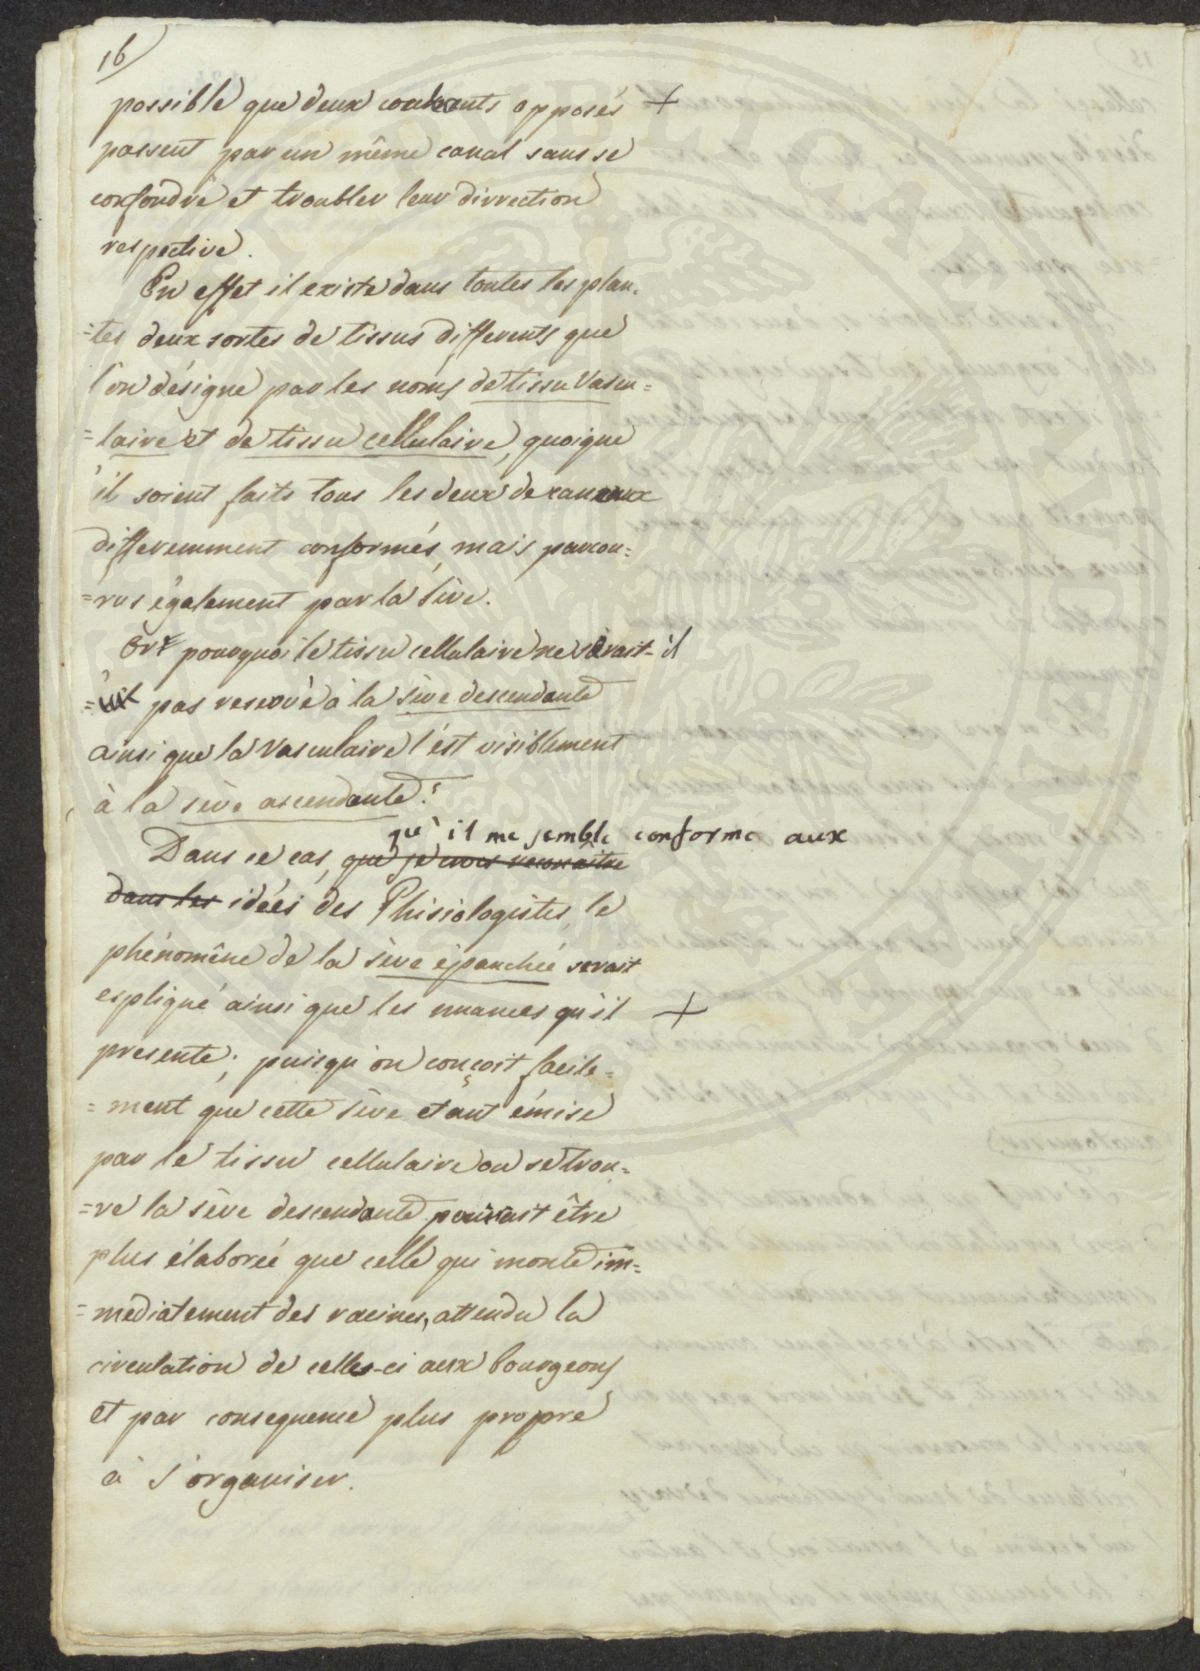 16
possible que deux courants opposés +
passent par un même canal sans se
confondre et troubler leur dirrection
respective.
En effet il existe dans toutes les plan=
=tes deux sortes de tissus differents que
l'on désigne par les noms de tissu Vascu=
=laire et de tissu cellulaire, quoique
'il soient faits tous les deux de canaux
differemment conformés, mais parcou=
=rus également par la sève.
Or pourquoi le tissu cellulaire ne serait-il
pas reservé à la sève descendante
ainsi que la Vasculaire l'est visiblement
à la sève ascendante?
qu'il me semble conforme aux
Dans ce cas, que je crois reconnaitre
dans les idées des Phisiologistes, le
phénomêne de la sève épanchée serait
expliqué ainsi que les nuances qu'il +
presente; puisqu'on conçoit facile=
=ment que cette sève etant émise
par le tissu cellulaire ou se trou=
=ve la sève descendante pourrait être
plus élaborée que celle qui monte im=
=mediatement des racines, attendu la
circulation de celles-ci aux bourgeons
et par consequence plus propre
à s'organiser.